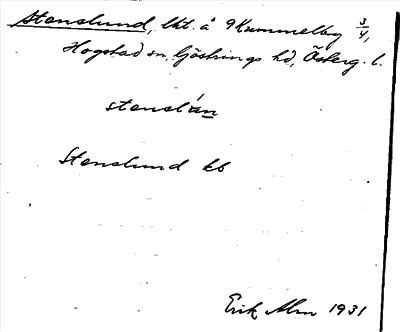 Stenslund, lht. å Kummelby 3/4,
Hogstad sn, Göstrings hd, Österg. l.
stenslán
Stenslund kb
Erik Alm 1931